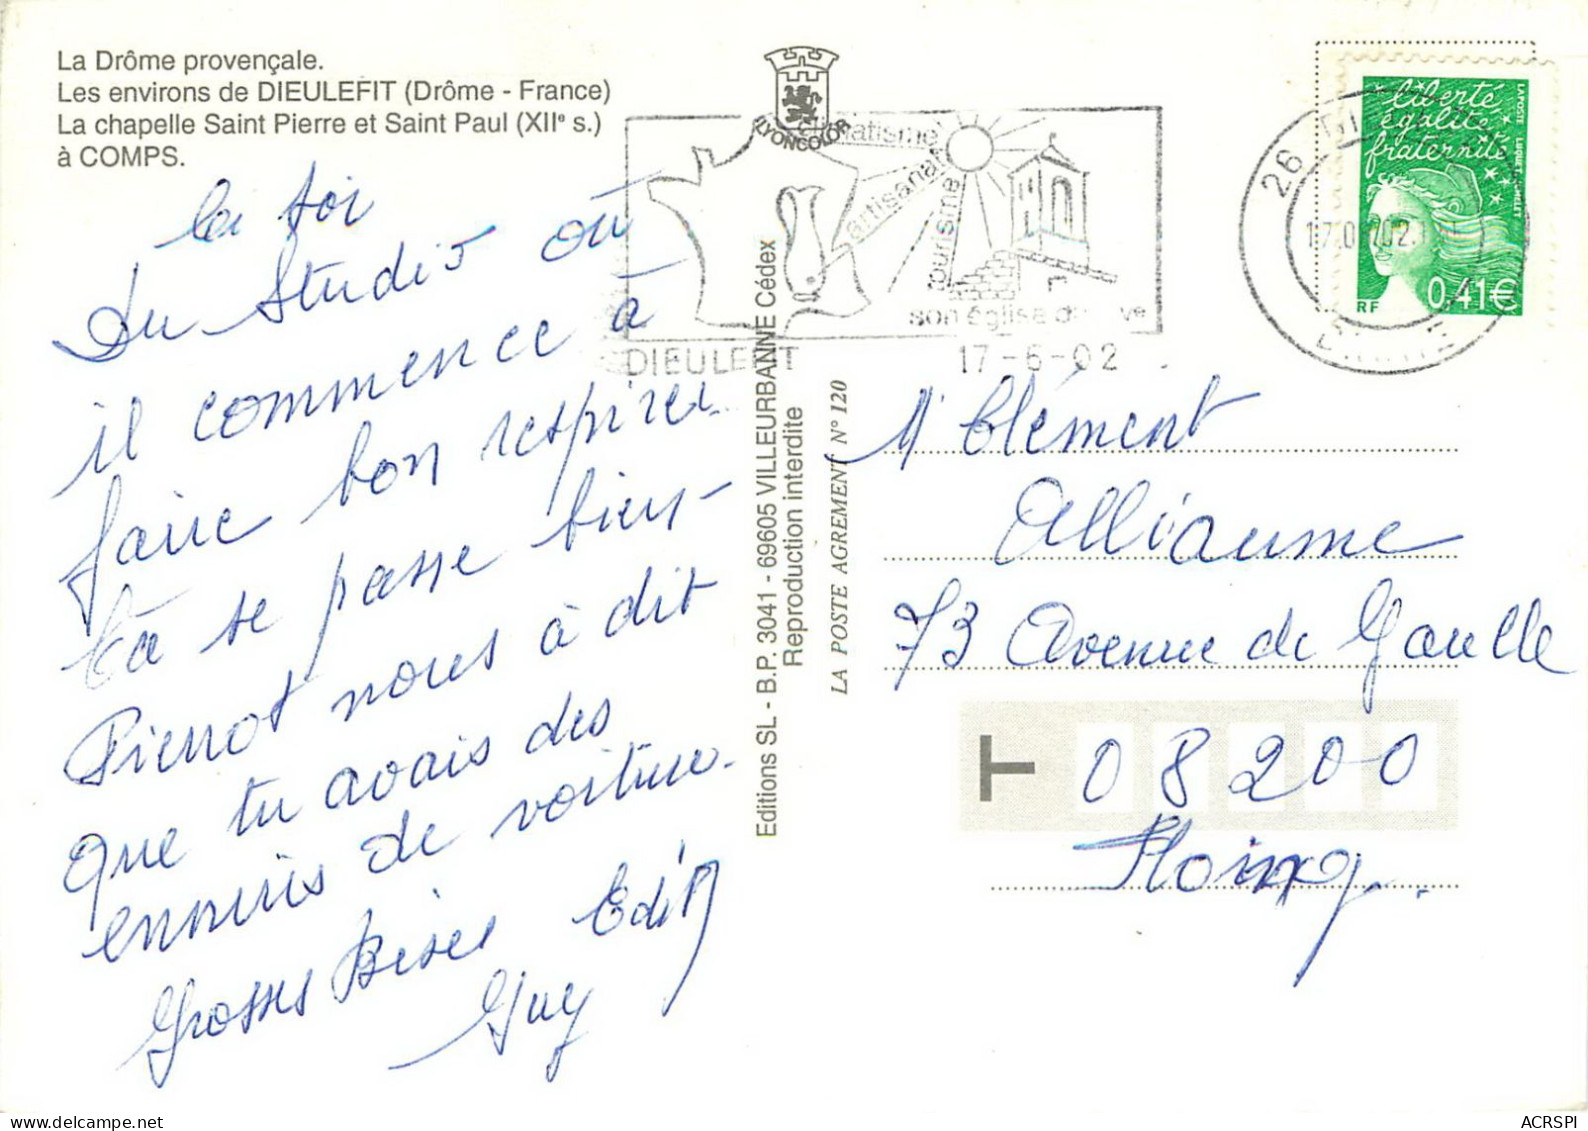 La Drôme provençale.
Les environs de DIEULEFIT (Drôme - France)
La chapelle Saint Pierre et Saint Paul (XIIe s.)
à COMPS.
LYONCOLOR
climatisme
artisanat
tourisme
son église
DIEULEFIT
17-6-02
26
liberté
égalité
fraternité
LA POSTE
RF
0,41€
Du Studio où
il commence à
faire bon respirer
se passe bien
Pierrot nous à dit
que tu avais des
ennuis de voiture.
Grosses Bises Edith
Guy
Editions SL - B.P. 3041 - 69605 VILLEURBANNE Cédex
Reproduction interdite
LA POSTE AGREMENT N° 120
Mr Clément
Alliaume
73 Avenue de Gaulle
T 08200
Floing.
ACRSPI